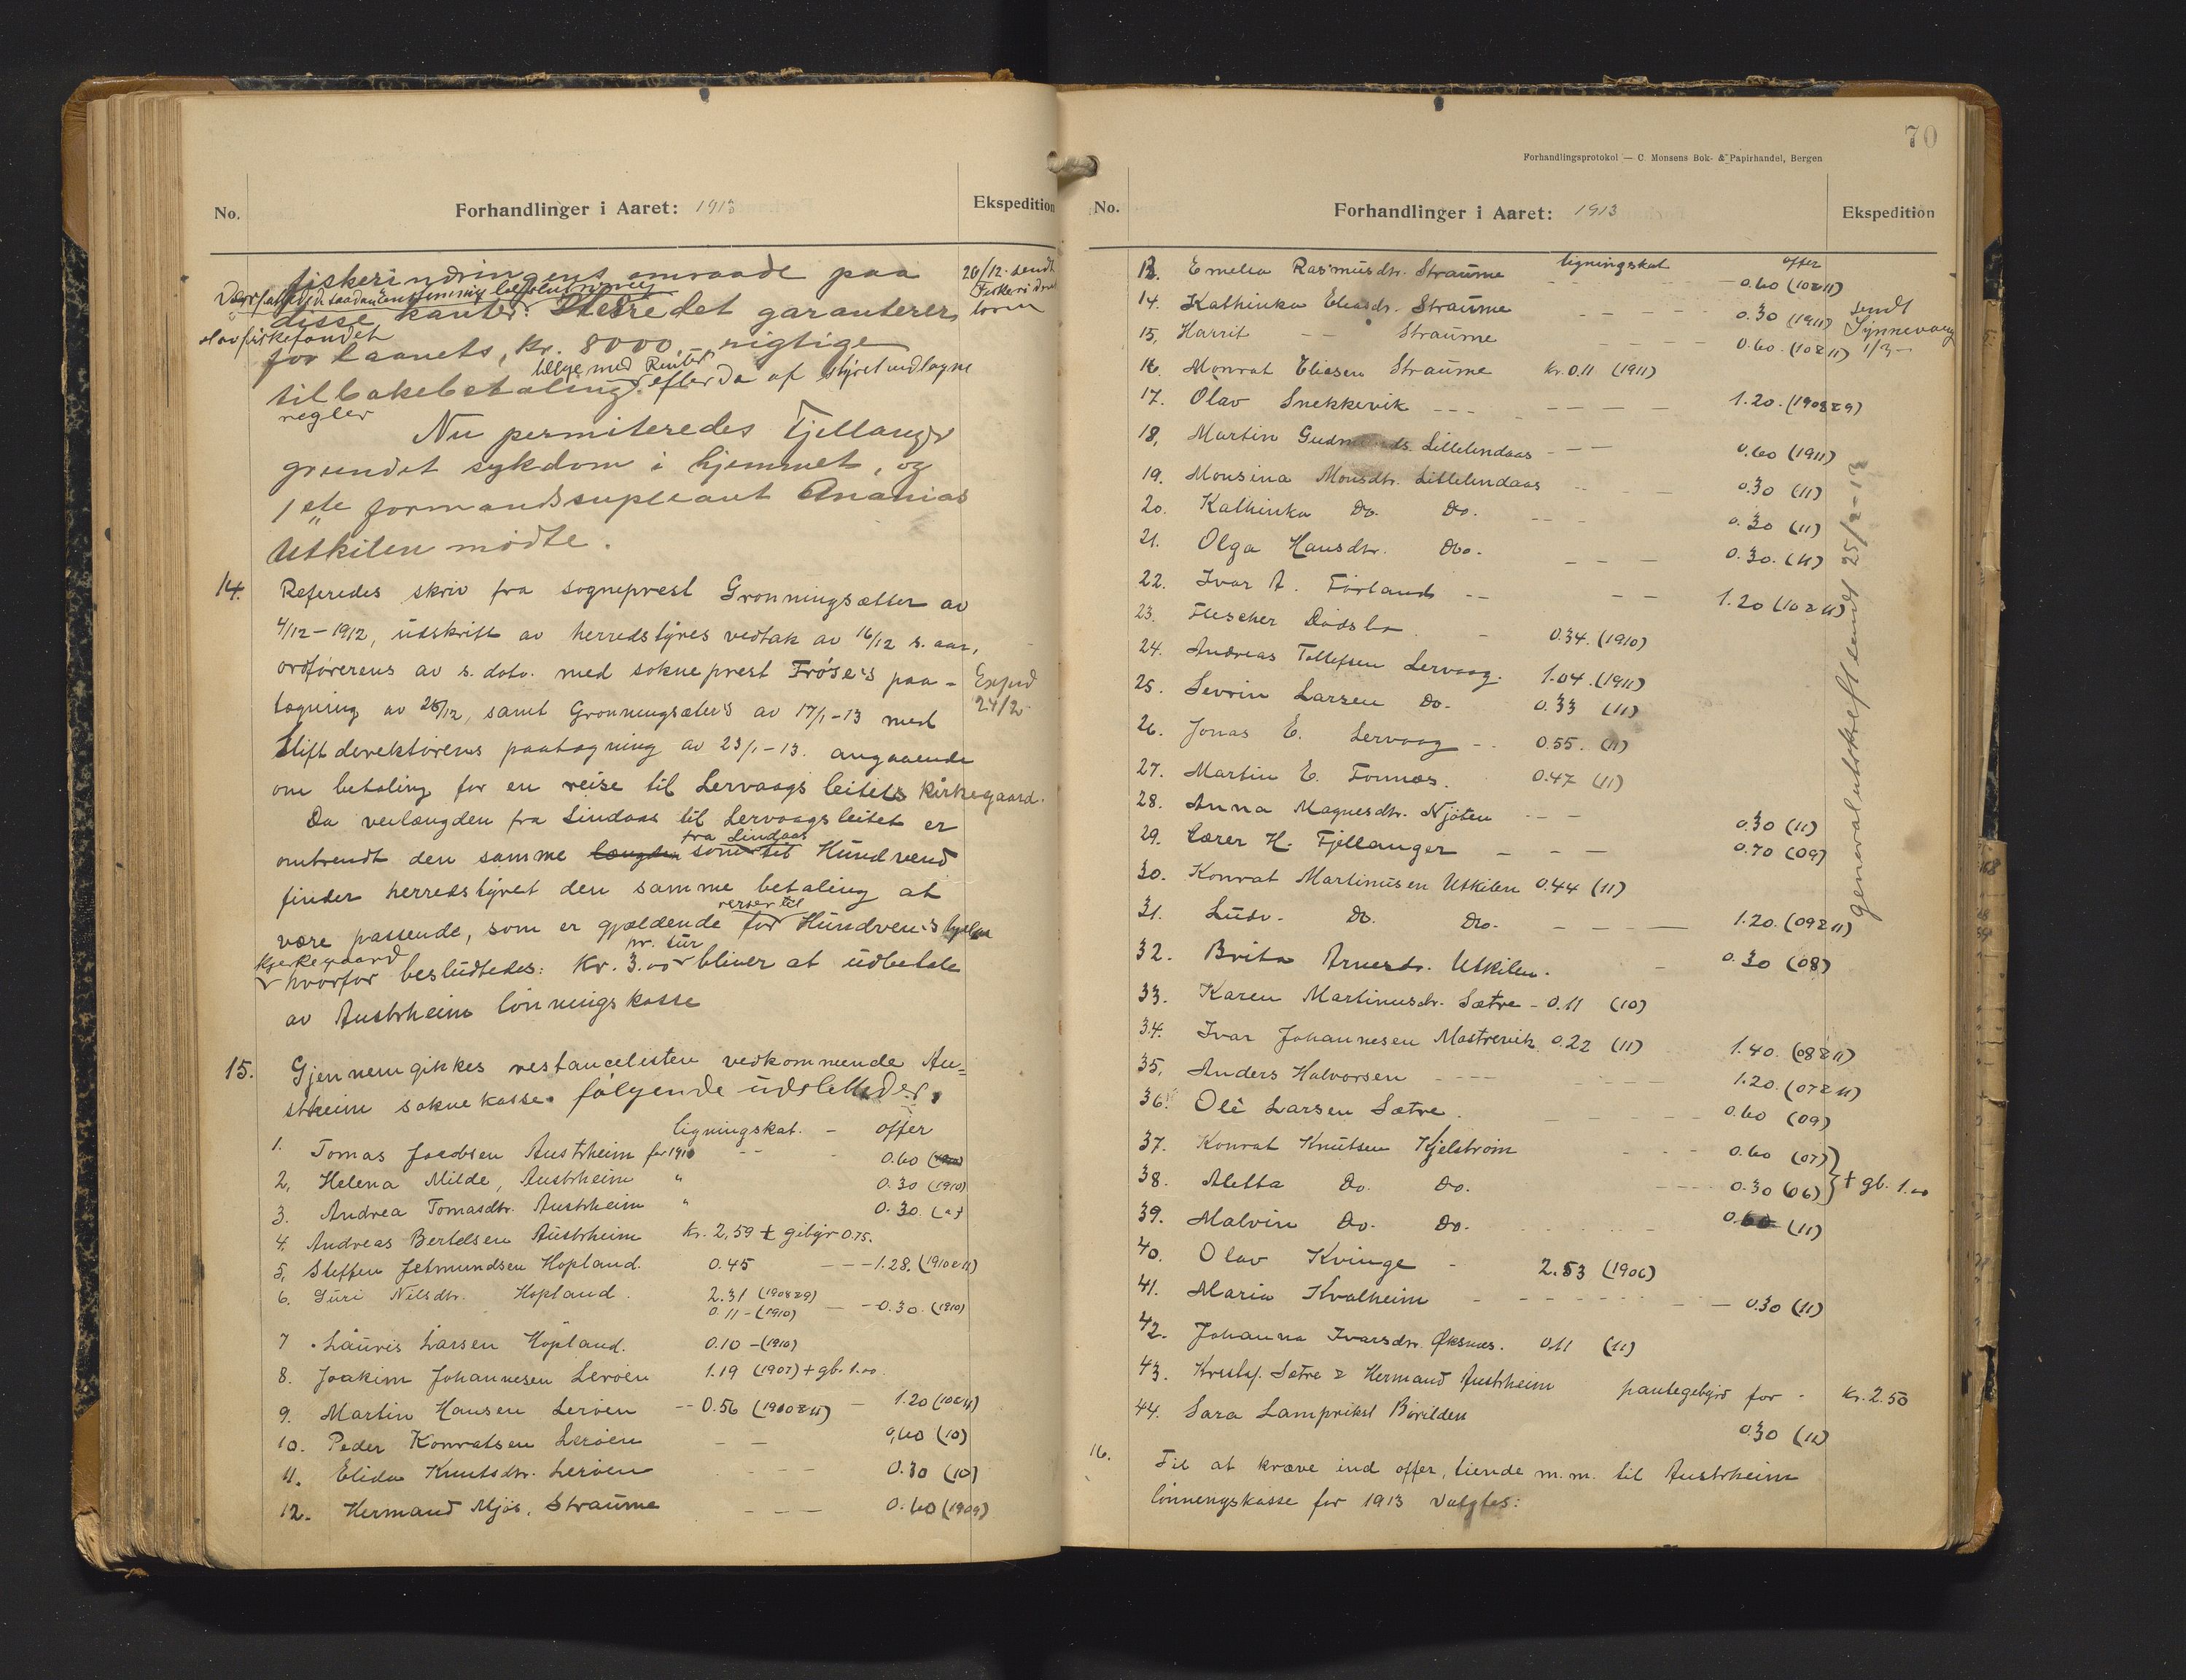 No. Forhandlinger i Aaret: 1913 Ekspedition
fiskerindringens omraade paa
disse kanter. Herredet garanterer
for laanets, Kr. 8000, rigtige
tilbakebetaling tillige med Renter efter de af styret vedtagne
regler
26/12. sendt
Nu permiteredes Fjellanger
grundet sykdom i hjemmet, og
1ste formandssupleant Ananias
Utkilen mødte.
14. Referedes skriv fra sogneprest Gronningsæter av
4/12-1912, utskrift av herredstyres vedtak av 16/12 s. aar,
ordførerens av s. dato. med sokneprest Frøse's paa-
tegning av 28/12, samt Gronningsæters av 17/1-13 med
Stiftdirektørens paategning av 23/1-13. angaaende
om betaling for en reise til Lervaags leitets kirkegaard.
Exped
24/2
Da veilængden fra Lindaas til Lervaagsleitet er
omtrendt den samme længden som fra Lindaas til Hundvend
finder herredstyret den samme betaling at
være passende, som er gjældende for reiser til Hundven's
kjerkegaard hvorfor besludtedes: Kr. 3.00 pr. tur bliver at udbetale
av Austrheim lönningskasse
15. Gjennemgikkes restancelisten vedkommende Au=
strheim soknekasse. følgende udsletteder.
ligningskat. - offer
1. Tomas Jacobsen Austrheim for 1910 -- - 0.60
2. Helena Milde, Austrheim " 0.30 (1910)
3. Andrea Tomasdtr. Austrheim " 0.30.
4. Andreas Bertelsen Austrheim Kr. 2,59 + gebyr 0.75.
5. Steffen Jetmundsen Hopland. 0.45 --- 1.28. (1910&11)
6. Guri Nilsdtr. Hopland. 2.31 (1908&9)
0.11 - (1910) -- 0.30. (1910)
7. Lauris Larsen Hopland. 0.10 - (1910)
8. Joakim Johannesen Leröen 1.19 (1907) + gb. 1.00.
9. Martin Hansen Leröen -- 0.56 (1910&11) - 1.20 (10&11)
10. Peder Konratsen Leröen -- 0,60 (10)
11. Elida Knutsdtr. Leröen ---- 0.30 (10)
12. Hermand Mjös. Straume --- 0.60 (1909)
70
Forhandlingsprotokol — C. Monsens Bok- & Papirhandel, Bergen
No. Forhandlinger i Aaret: 1913 Ekspedition
ligningskat offer
13. Emelia Rasmusdtr. Straume 0.60 (10&11)
14. Kathinka Eliasdr. Straume ---- 0.30 (1911)
15. Harrit -- Straume ---- 0.60. (10&11)
sendt
Synnevaag
1/3-
16. Monrat Eliasen Straume Kr. 0.11 (1911)
17. Olav Snekkevik --- ---- 1.20. (1908&9)
18. Martin Lillelindaas --- 0.60 (1911)
19. Monsina Monsdtr. Lillelindaas -- 0.30 (11)
20. Kathinka Do. Do. --- 0.30 (11)
21. Olga Hansdtr. Do. --- 0.30. (11)
22. Ivar A. Förland -- -- 1.20 (10&11)
23. 0.34. (1910)
24. Andreas Tollefsen Lervaag. 1.04. (1911)
25. Sevrin Larsen Do. 0.33 (11)
26. Jonas E. Lervaag -- 0.55. (11)
27. Martin E. Fonnes. 0.47 (11)
28. Anna Magnesdtr. Njöten --- 0.30 (11)
29. H. Fjellanger --- 0.70 (09)
30. Konrat Martinusen Utkilen 0.44 (11)
31. Ludv. Do. Do. ---- 1.20. (09&11)
generalutskrift sendt 25/2-13
32. Brita Arnesdr. Utkilen. - 0.30 (08)
33. Karen Martinusdr. Sætre - 0.11 (10)
34. Ivar Johannesen Mastrevik 0.22 (11) 1.40. (08&11)
35. Anders Halvorsen --- --- 1.20. (07&11)
36. Ole Larsen Sætre. ---- 0.60 (09)
37. Konrat Knutsen Kjelström --- 0.60 (07)
38. Aletta Do. Do. ---- 0.30 (06) } + gb. 1.00
39. Malvin Do. Do. (11)
40. Olav Kvinge - 2.53 (1906)
41. Maria Kvalheim -------- 0.30 (11)
42. Johanna Ivarsdr. Øksnes. 0.11 (11)
43. Kristof. Sætre & Hermand Austrheim pantegebyr for - Kr. 2.50
44. Sara Lamprikst 0.30 (11)
16. Til at kræve ind offer, tiende m.m. til Austrheim
lönningskasse for 1913 valgtes: